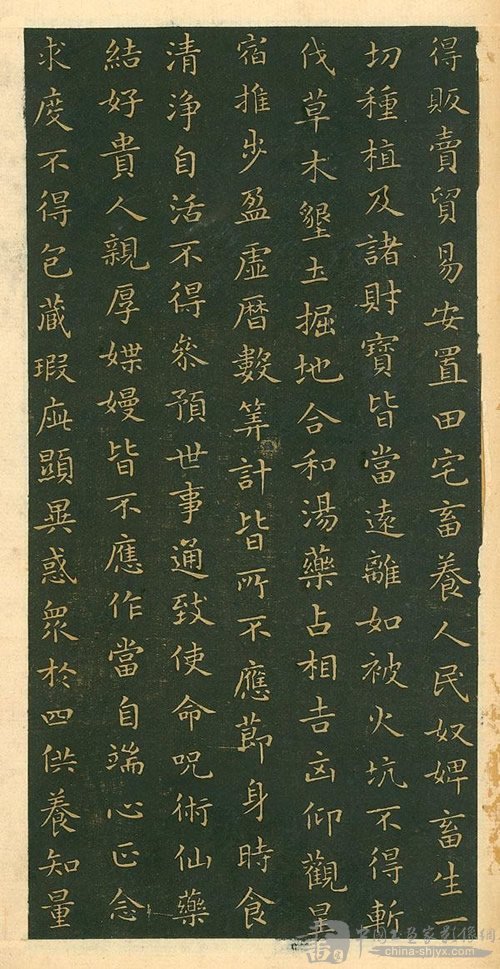 得販賣貿易安置田宅畜養人民奴婢畜生一
切種植及諸財寶皆當遠離如被火坑不得斬
伐草木墾土掘地合和湯藥占相吉凶仰觀星
宿推步盈虛曆數筭計皆所不應節身時食
清淨自活不得參預世事通致使命呪術仙藥
結好貴人親厚媟嫚皆不應作當自端心正念
求度不得包藏瑕疵顯異惑衆於四供養知量
中國書画家影像網
china-shjyx.com